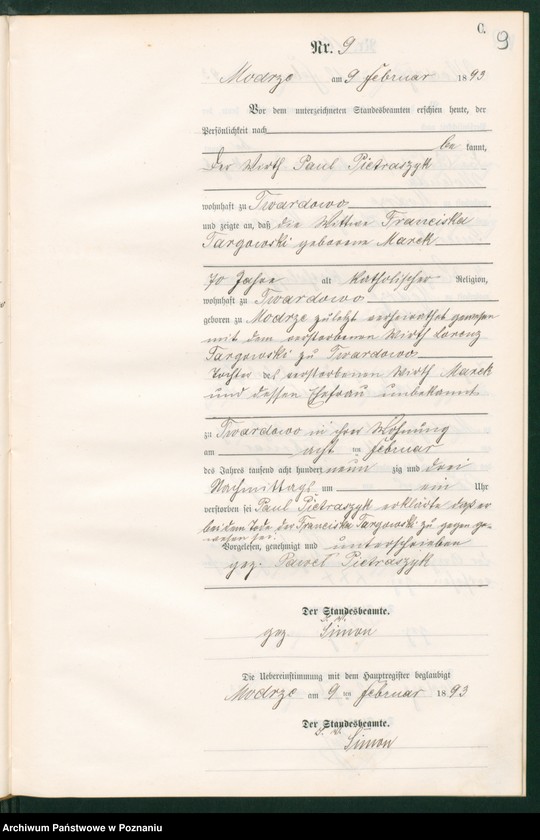 C.
9
Nr. 9
Modrze am 9 Februar 1893
Vor dem unterzeichneten Standesbeamten erschien heute, der
Persönlichkeit nach
be kannt,
der Wirth Paul Pietraszyk
wohnhaft zu Twardowo
und zeigte an, daß die Wittwe Franciska
Targowski geborene Marek
70 Jahre alt katholischer Religion,
wohnhaft zu Twardowo
geboren zu Modrze zuletzt verheirathet gewesen
mit dem verstorbenen Wirth Lorenz
Targowski zu Twardowo
Tochter des verstorbenen Wirth Marek
und dessen Ehefrau unbekannt
zu Twardowo in ihrer Wohnung
am acht ten Februar
des Jahres tausend acht hundert neun zig und drei
Nachmittags um ein Uhr
verstorben sei Paul Pietraszyk erklärte daß er
bei dem Tode der Franciska Targowski zu gegen ge-
wesen sei.
Vorgelesen, genehmigt und unterschrieben
gez. Paweł Pietraszyk
Der Standesbeamte.
gez Simon
Die Uebereinstimmung mit dem Hauptregister beglaubigt
Modrze am 9 ten Februar 1893
Der Standesbeamte.
Simon
Archiwum Państwowe w Poznaniu